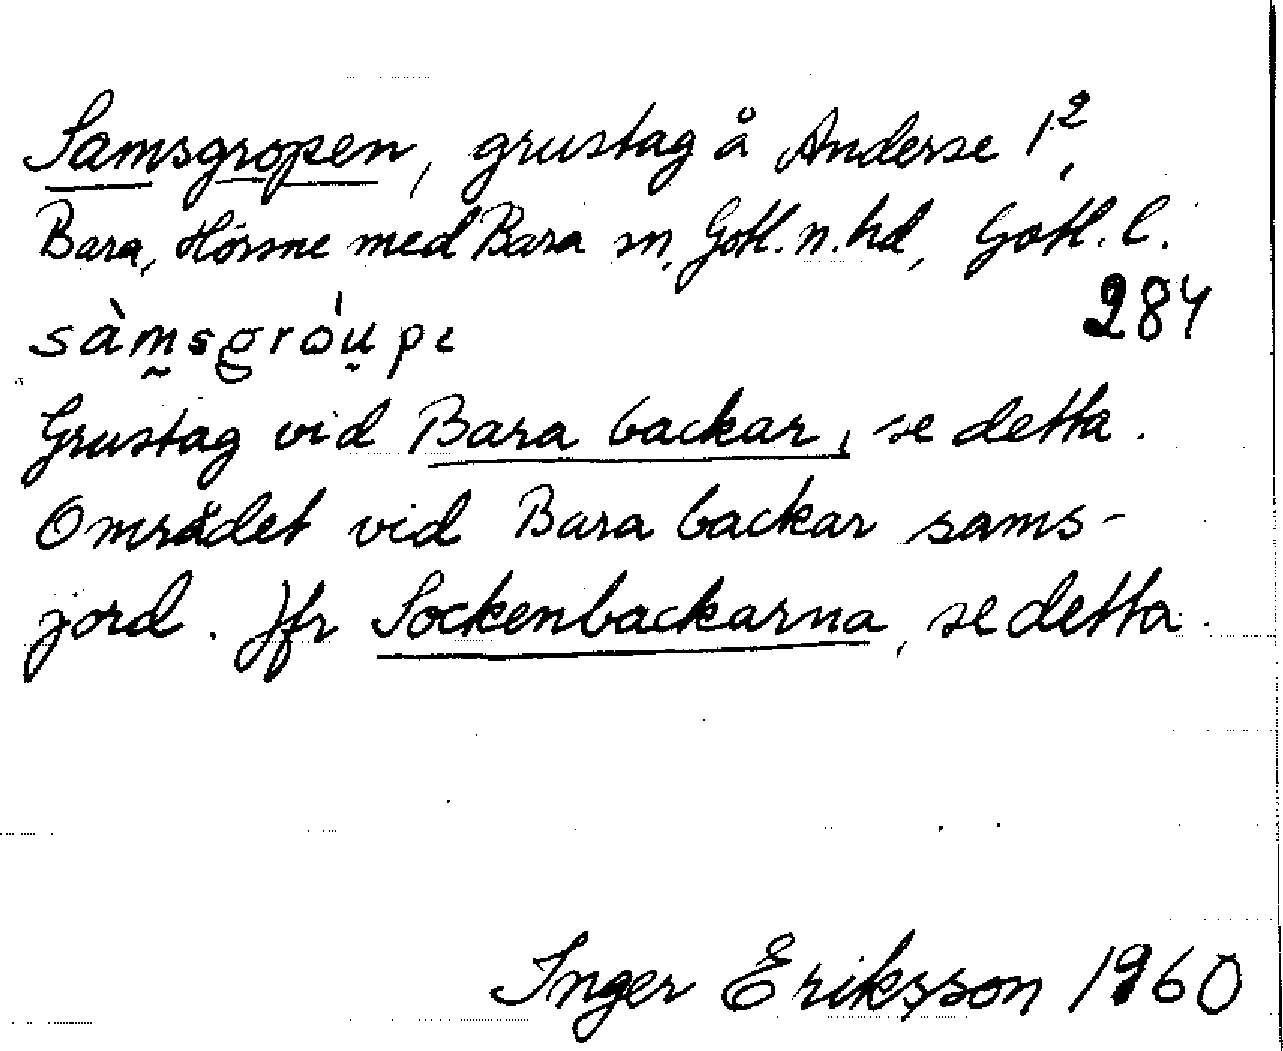 Samsgropen, grustag å Anderse 1²,
Bara, Hörsne med Bara sn, Gotl. n. hd, Gotl. l.
284
sàm̰sgróu̯pe
Grustag vid Bara backar, se detta.
Området vid Bara backar sams-
jord. Jfr Sockenbackarna, se detta.
Inger Eriksson 1960